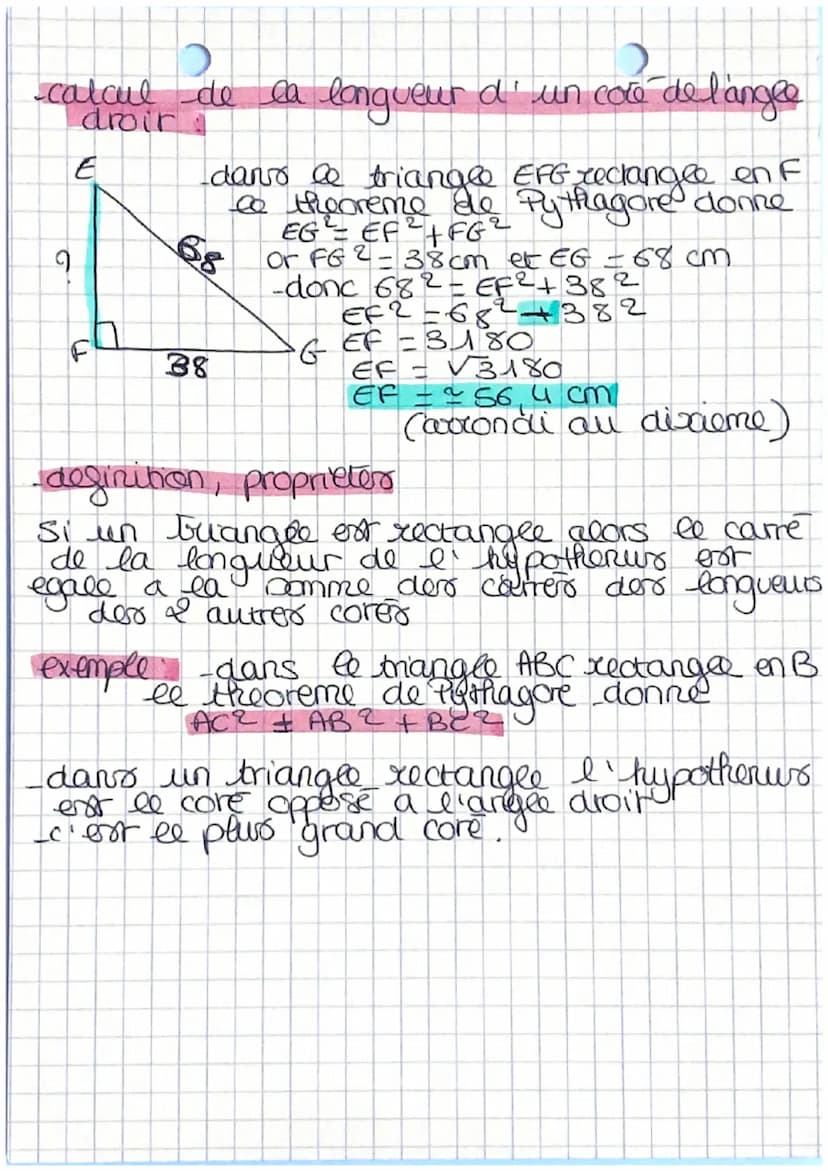 -calcul de la longueur d'un coté de l'angle
droir :
E
-dans le triangle EFG rectangle en F
le theoreme de Pythagore donne
EG² = EF² + FG²
68
?
or FG² = 38cm et EG = 68 cm
-donc 68² = EF² + 38²
EF² = 68² + 38²
F
38
G
EF = 3180
EF = √3180
EF = ≃ 56,4 cm
(arrondi au dixieme)
-definition, proprietes
Si un triangle est rectangle alors le carré
de la longueur de l'hypothenus est
egale a la somme des carrés des longueurs
des 2 autres cotés
exemple : -dans le triangle ABC rectangle en B
le theoreme de Pythagore donne
AC² = AB² + BC²
-dans un triangle rectangle l'hypothenus
est le coté opposé a l'angle droit
-c'est le plus grand coté.